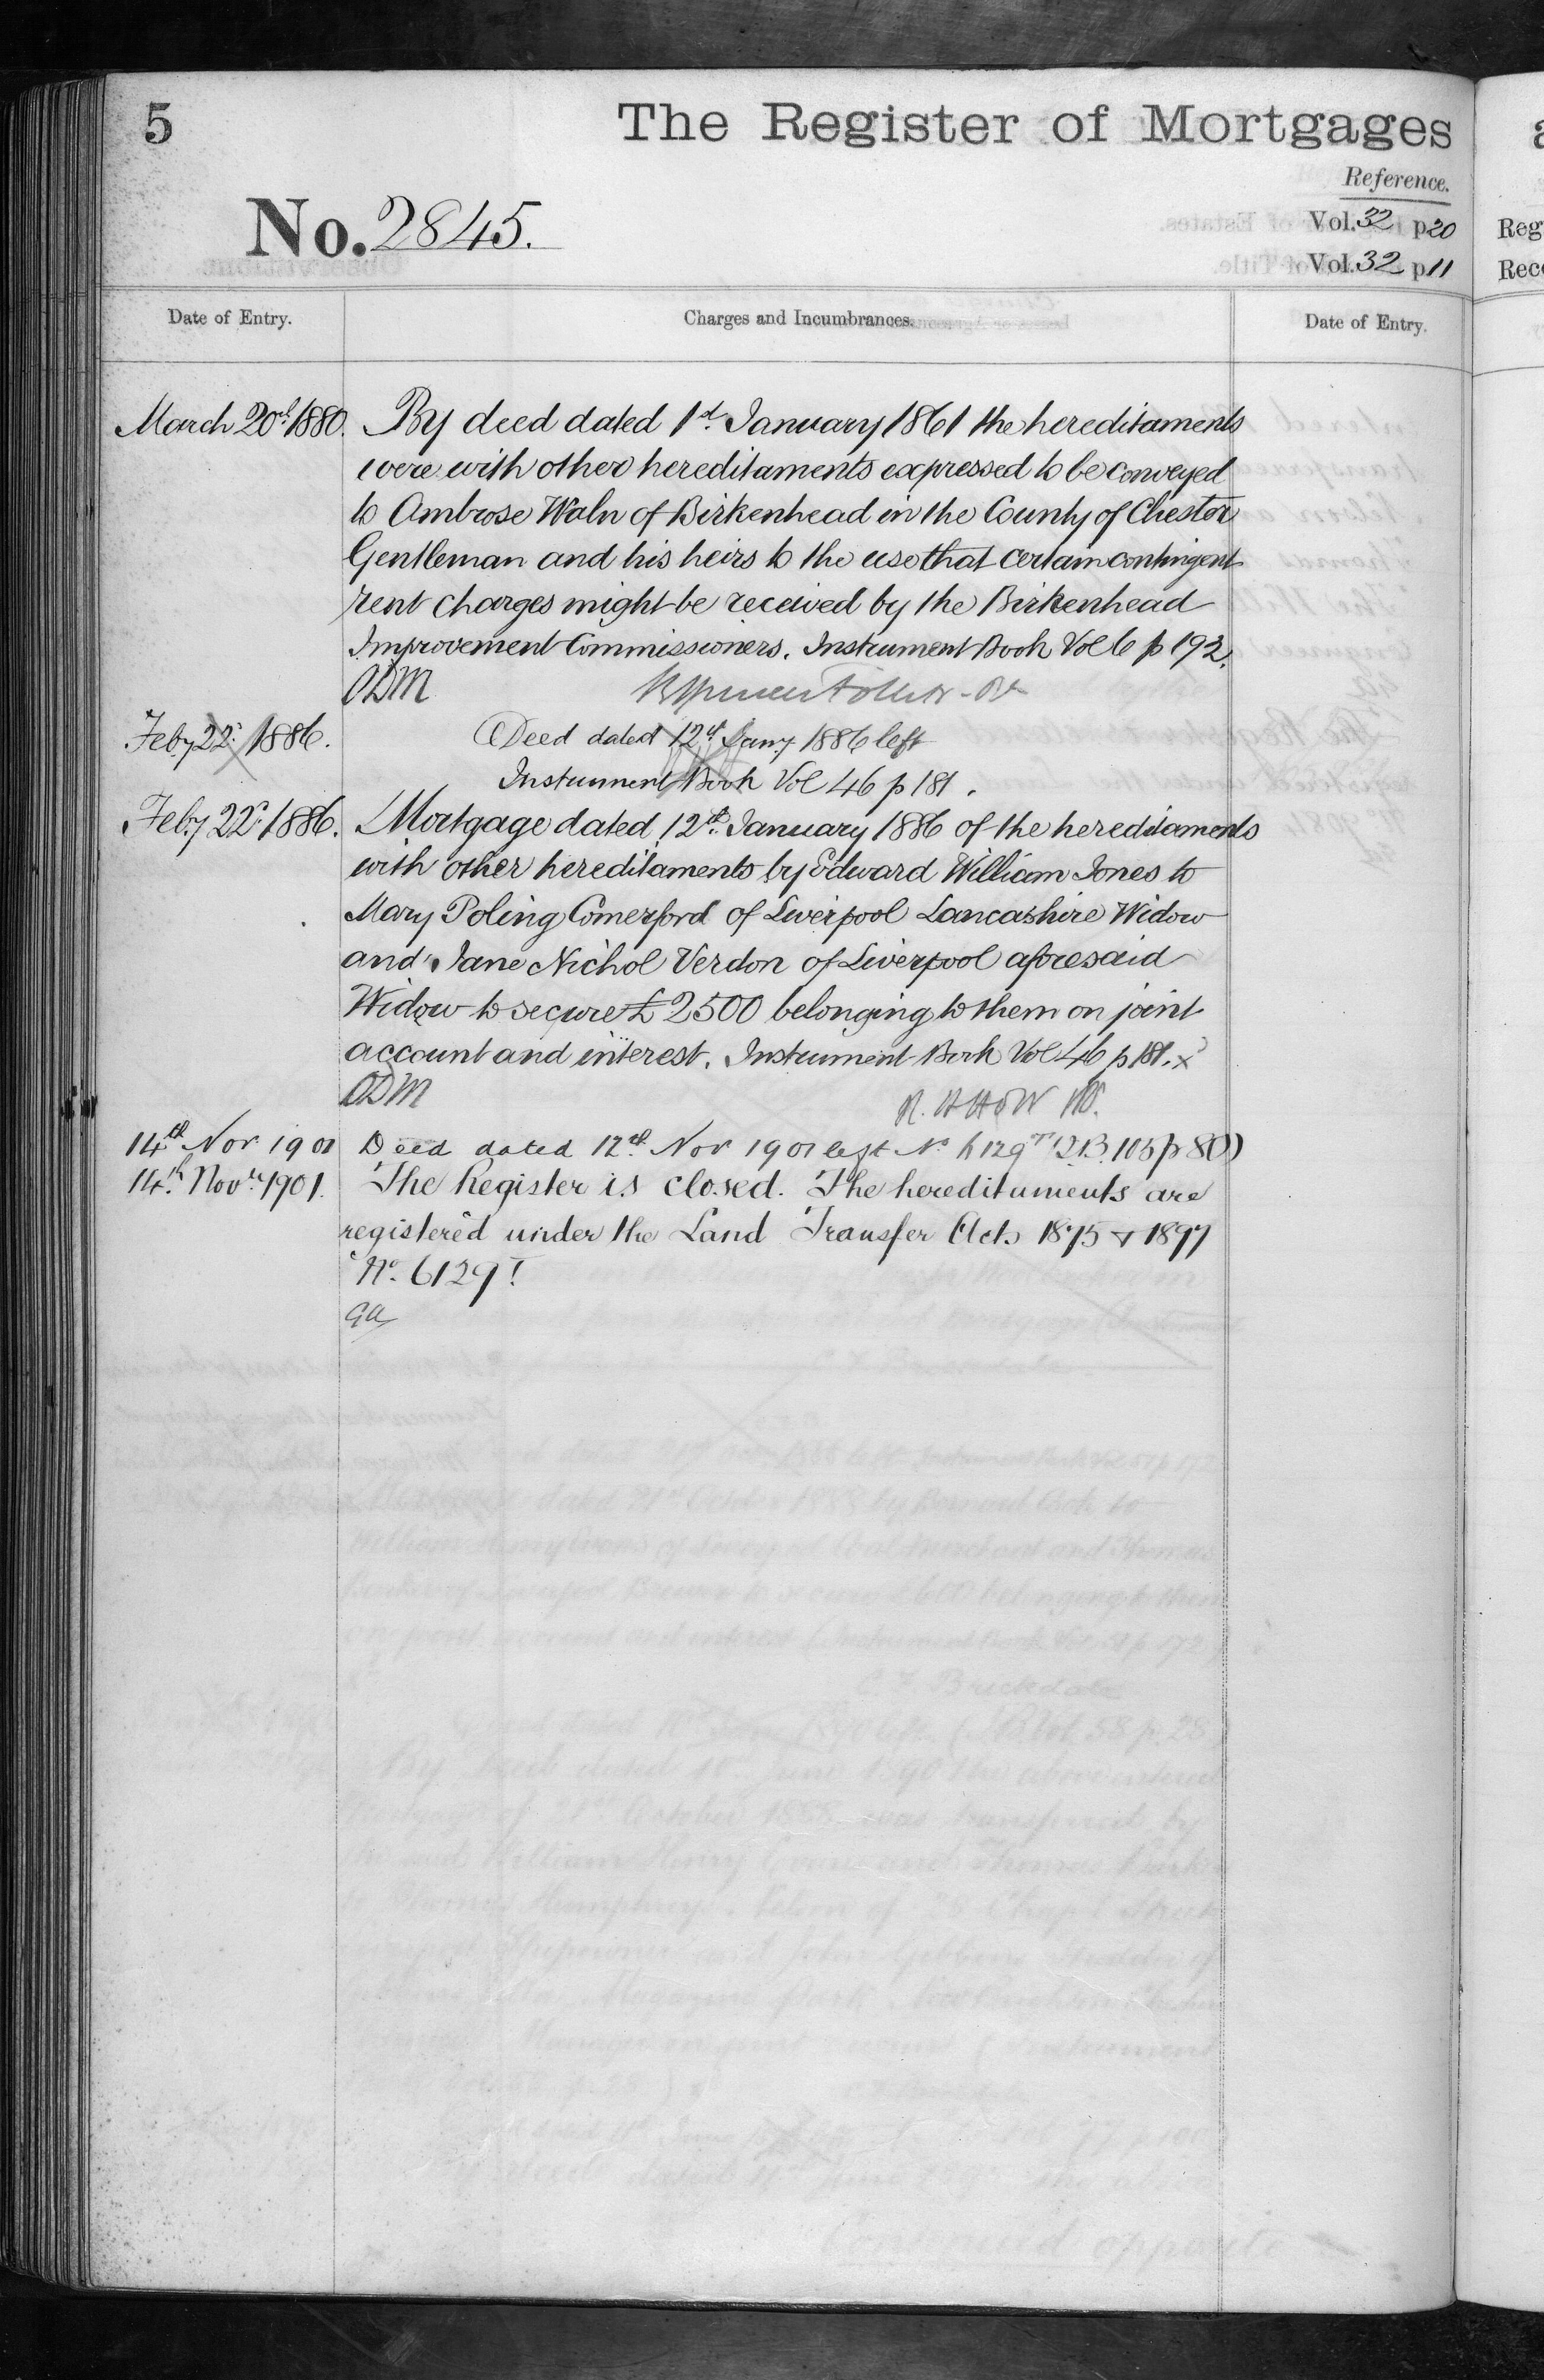 5
The Register of Mortgages
Reference.
No. 2845.
Vol. 32 p 20
Vol. 32 p 11
Reg
Rec
Date of Entry.
Charges and Incumbrances.
Date of Entry.
March 20th 1880. By deed dated 1st January 1861 the hereditaments
were with other hereditaments expressed to be conveyed
to Ambrose Waln of Birkenhead in the County of Chester
Gentleman and his heirs to the use that certain contingent
rent charges might be received by the Birkenhead
Improvement Commissioners. Instrument Book Vol 6 p 192.
ODM
Feby 22d 1886. Deed dated 12th Jany 1886 left
Instrument Book Vol 46 p 181.
Feby 22d 1886. Mortgage dated 12th January 1886 of the hereditaments
with other hereditaments by Edward William Jones to
Mary Poling Comerford of Liverpool Lancashire Widow
and Jane Nichol Verdon of Liverpool aforesaid
Widow to secure £2500 belonging to them on joint
account and interest. Instrument Book Vol 46 p 181. x
ODM
14th Nov 1901 Deed dated 12th Nov 1901 left No 6129 105 p 80)
14th Novr 1901. The Register is closed. The hereditaments are
registered under the Land Transfer Acts 1875 & 1897
No. 6129
ga